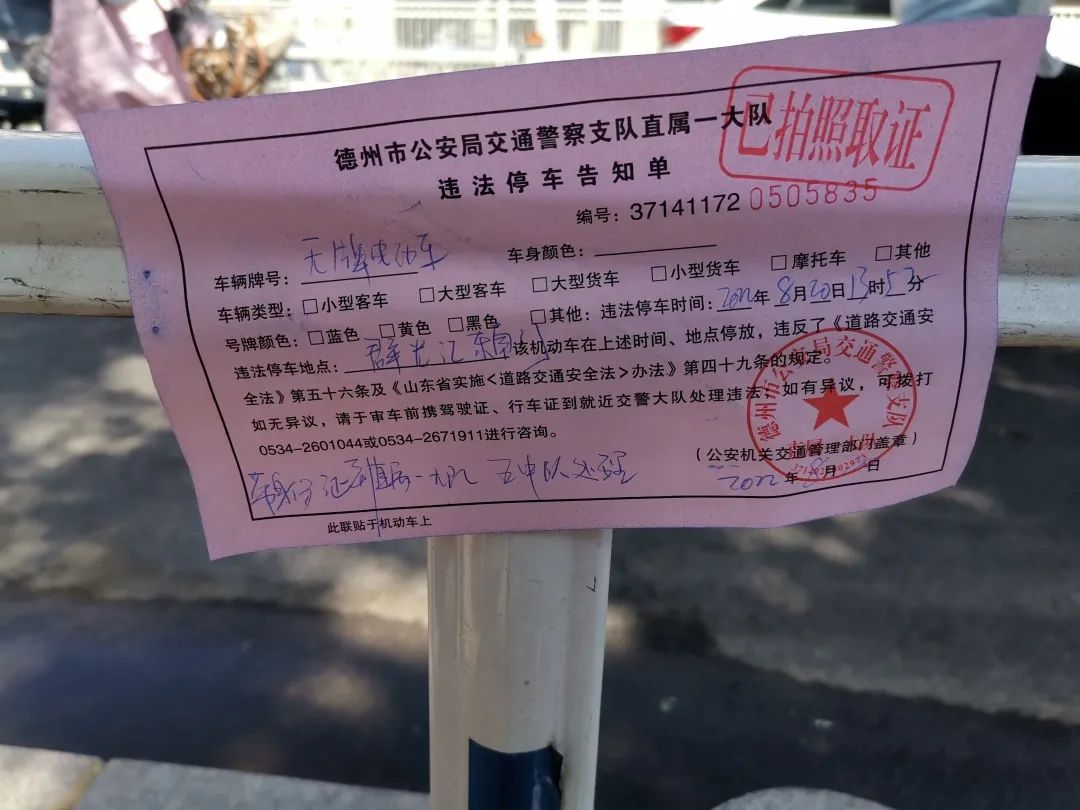 德州市公安局交通警察支队直属一大队
已拍照取证
违法停车告知单
编号：37141172 0505835
车辆牌号：无牌电动车 车身颜色：
车辆类型：□小型客车 □大型客车 □大型货车 □小型货车 □摩托车 □其他
号牌颜色：□蓝色 □黄色 □黑色 □其他：违法停车时间：2022年8月20日13时52分
违法停车地点：该机动车在上述时间、地点停放，违反了《道路交通安
全法》第五十六条及《山东省实施<道路交通安全法>办法》第四十九条的规定。
如无异议，请于审车前携驾驶证、行车证到就近交警大队处理违法；如有异议，可拨打
0534-2601044或0534-2671911进行咨询。
（公安机关交通管理部门盖章）
德州市公安局交通警察支队
2022年8月日
五中队处理
此联贴于机动车上